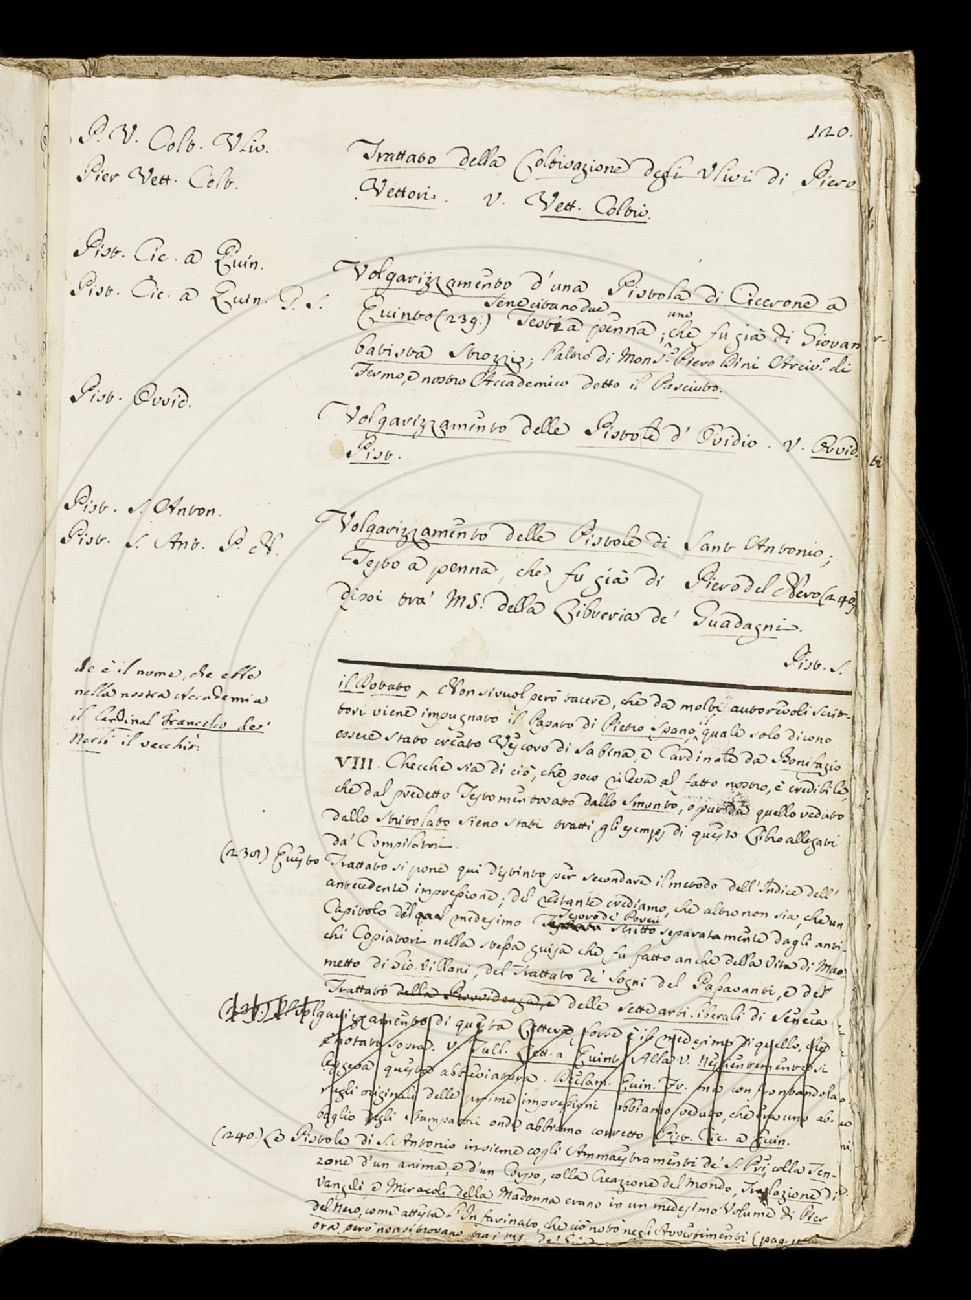 120.
P. V. Colt. Uliv.
Pier Vett. Colt.
Trattato della Coltivazione degli Ulivi di Piero
Vettori. V. Vett. Coltiv.
Pist. Cic. a Quin.
Pist. Cic. a Quin. G. S.
Volgarizzamento d'una Pistola di Cicerone a
Quinto (239:) Se ne citano due Testi a penna; uno che fu già di Giovan
batista Strozzi; l'altro di Mons.r Piero Dini Arciv.o di
Fermo, e nostro Accademico detto il Pasciuto.
Pist. Ovvid.
Volgarizzamento delle Pistole d'Ovidio. V. Ovvid.
Pist.
Pist. S. Anton.
Pist. S. Ant. P. N.
Volgarizzamento delle Pistole di Sant'Antonio;
Testo a penna, che fu già di Piero del Nero (240)
Dipoi tra' MS. della Libreria de' Guadagni.
Pist. S.
de è il nome, che ebbe
nella nostra Accademia
il Cardinal Francesco de'
Nerli il vecchio.
il Rovato ^ Non si vuol però tacere, che da molti autorevoli Scrit-
tori viene impugnato il Papato di Pietro Spano, quale solo dicono
essere stato creato Vescovo di Sabina, e Cardinale da Bonifazio
VIII. Checche sia di ciò, che poco rileva al fatto nostro, è credibile
che dal predetto Testo mentovato dallo Smunto, o pur da quello veduto
dallo Stritolato sieno stati tratti gli esempj di questo Libro allegati
da' Compilatori.
(239) Questo Trattato si pone qui distinto per secondare il metodo dell'Indice dell'
antecedente impressione; del restante crediamo, che altro non sia, che un
Capitolo del medesimo Tesoro de' Poveri scritto separatamente dagli anti-
chi Copiatori nella stessa guisa che fu fatto anche della Vita di Mao-
metto di Gio. Villani, del Trattato de' Sogni del Passavanti, e del
Trattato della Provvidenza, e delle sette arti liberali di Seneca
Volgarizzamento di questa Lettera forse è il medesimo di quello, che
è notato sopra. V. Tull. Lett. a Quint. Alla V.
leggeva questa abbreviatura. Declam. Quin. Fr. ma con
negli originali delle prime impressioni abbiamo veduto, che
baglio degli stampatori onde abbiamo corretto Pist. Cic. a Quin.
(240) Le Pistole di S. Antonio insieme cogli Ammaestramenti de' S. Pri, colla Ten-
zone d'un anima, e d'un Corpo, colla Creazione del Mondo, Traslazione di
Vangeli, e Miracoli della Madonna erano in un medesimo Volume di Pier
del Nero, come attesta l'Infarinato, che ciò notò negli Avvertimenti (pag.
ora però non si trovano tra i MS. de'